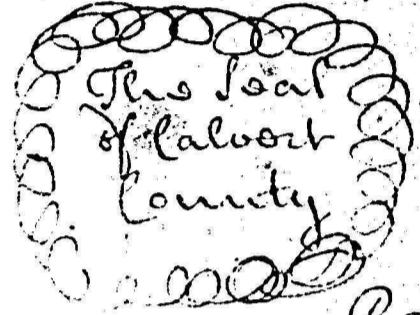 The Seal
of Calvert
County